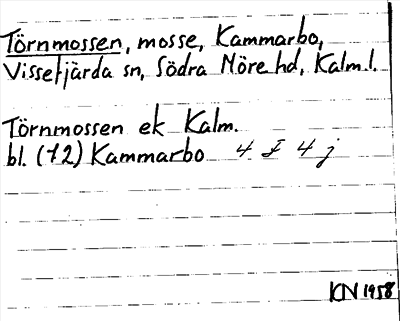 Törnmossen, mosse, Kammarbo,
Vissefjärda sn, Södra Möre hd, Kalm.l.
Törnmossen ek Kalm.
bl. (72) Kammarbo 4 F 4 j
KN 1958